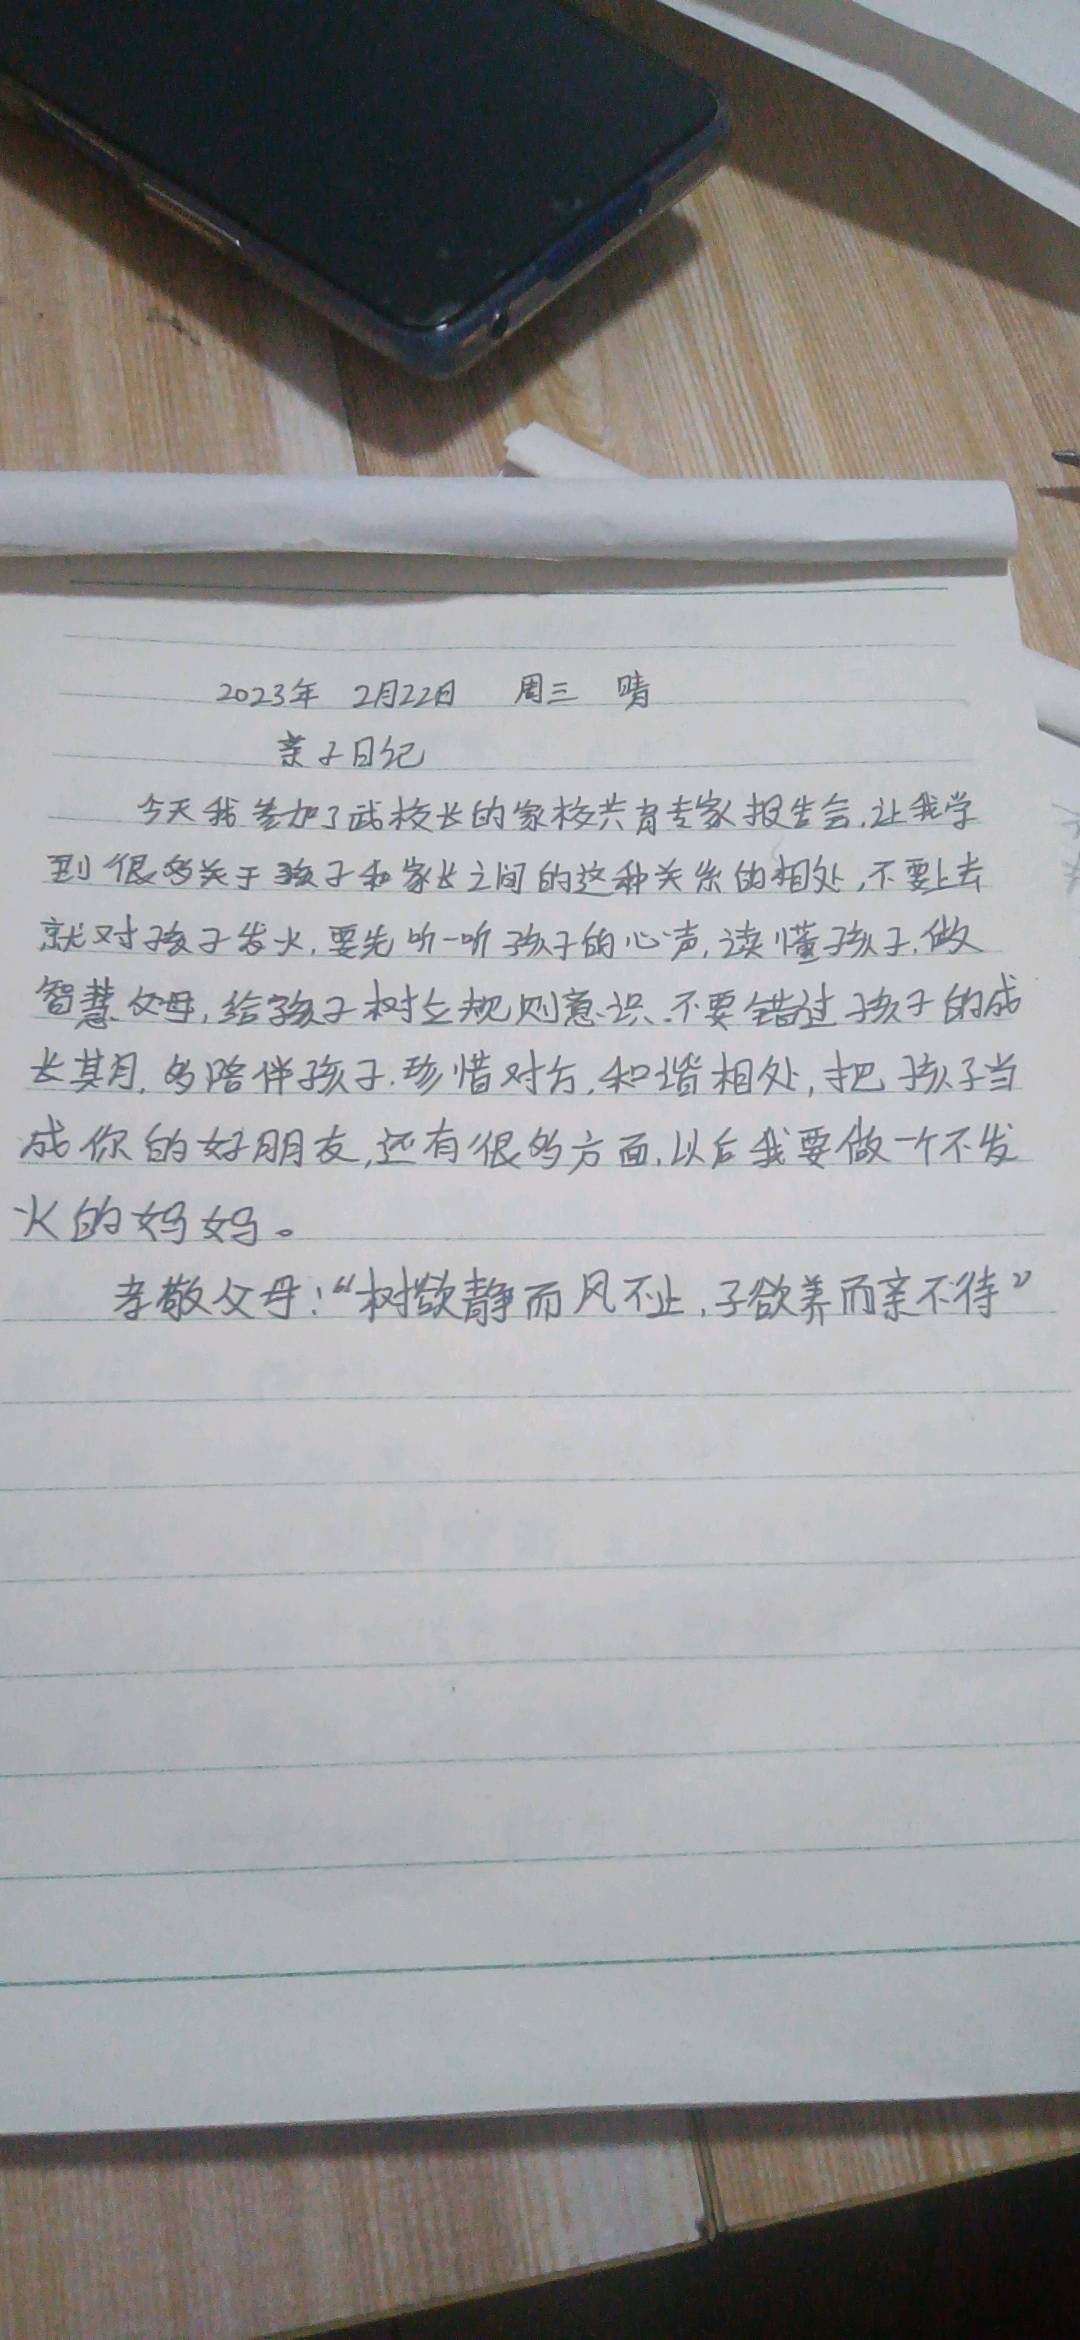 2023年 2月22日 周三 晴
亲子日记
今天我参加了武校长的家校共育专家报告会,让我学
到很多关于孩子和家长之间的这种关系的相处,不要上去
就对孩子发火,要先听一听孩子的心声,读懂孩子,做
智慧父母,给孩子树立规则意识.不要错过孩子的成
长其月,多陪伴孩子.珍惜对方,和谐相处,把孩子当
成你的好朋友,还有很多方面,以后我要做一个不发
火的妈妈。
孝敬父母:“树欲静而风不止,子欲养而亲不待”